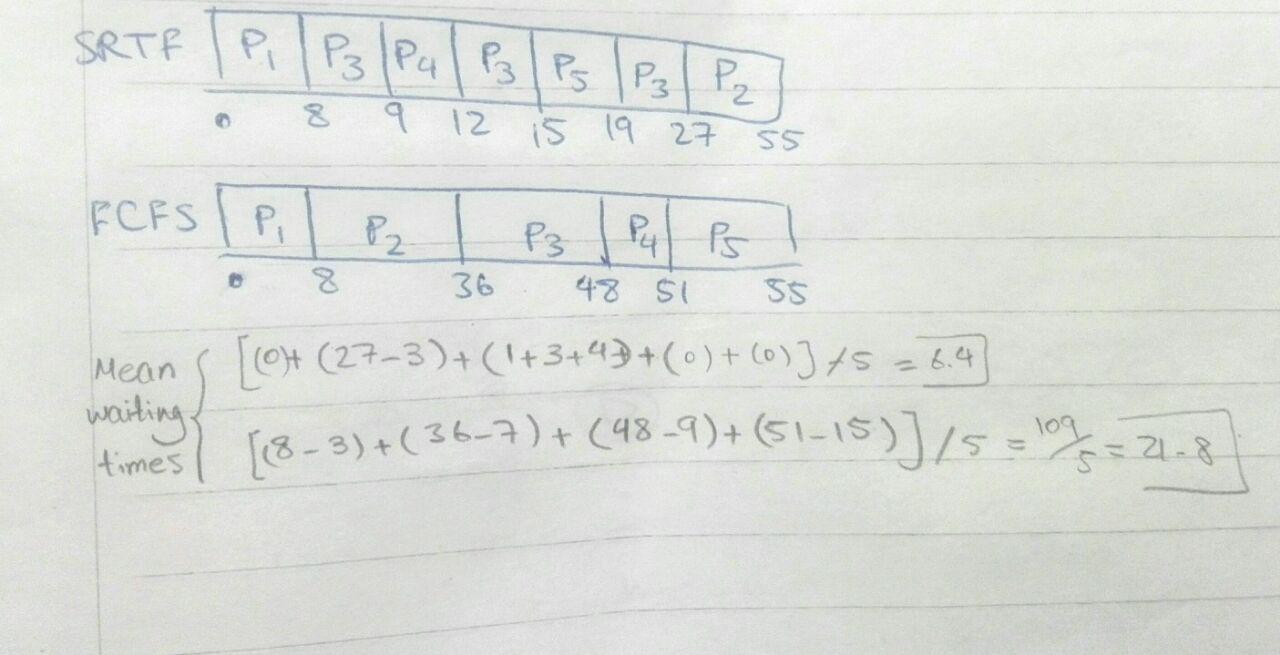 SRTF P1 P3 P4 P3 P5 P3 P2
0 8 9 12 15 19 27 55
FCFS P1 P2 P3 P4 P5
0 8 36 48 51 55
Mean waiting times { [(0)+(27-3)+(1+3+4)+(0)+(0)]/5 = 6.4
[(8-3)+(36-7)+(48-9)+(51-15)]/5 = 109/5 = 21.8